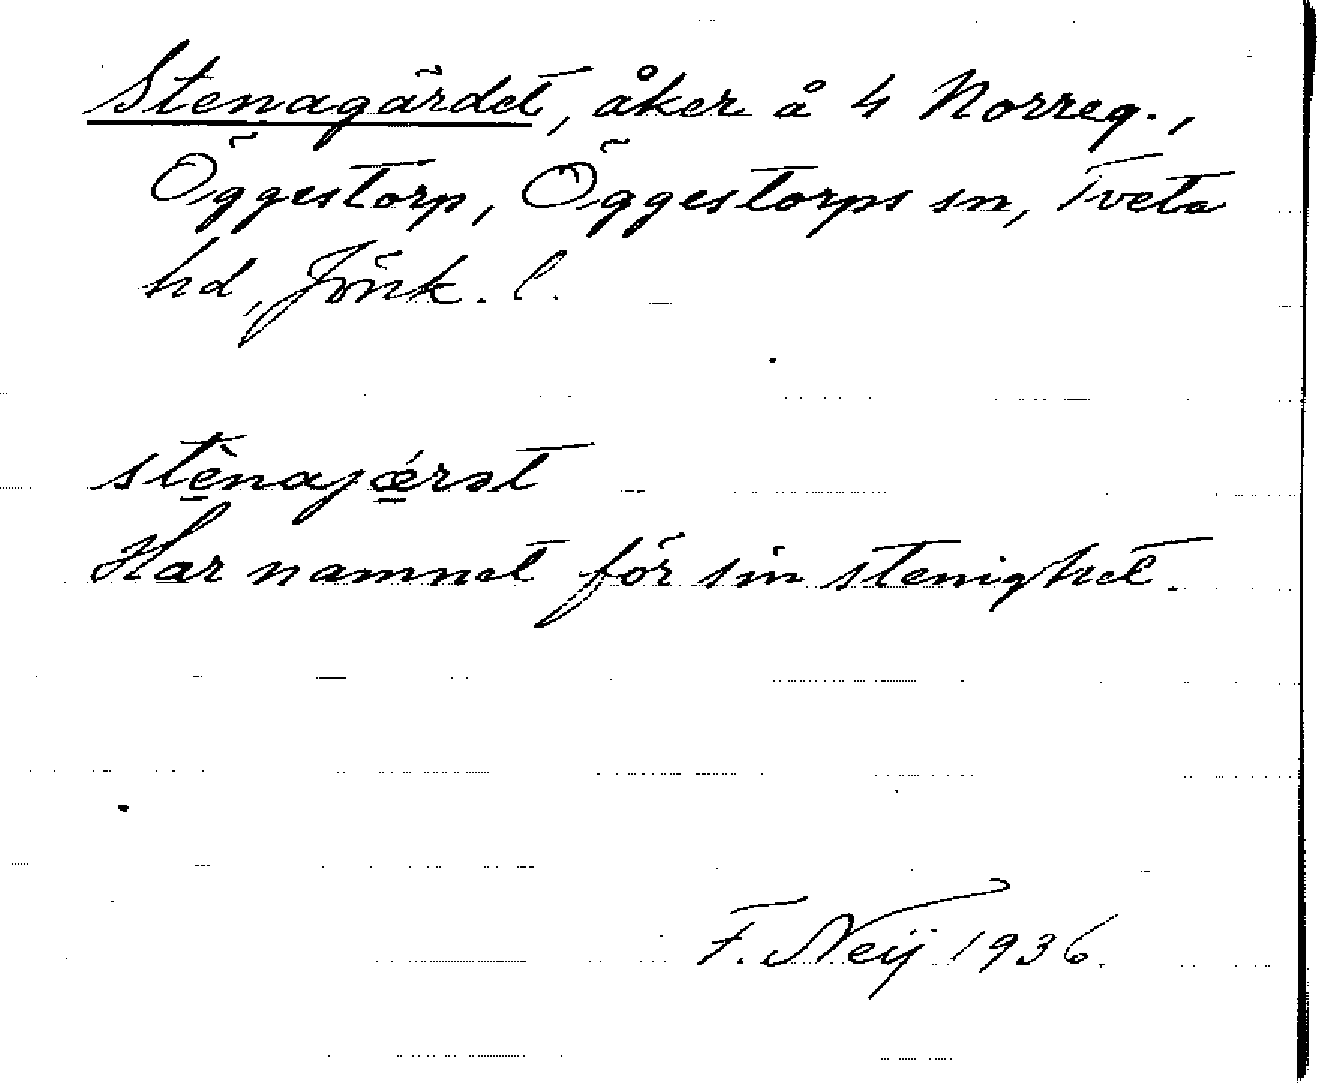 Stenagärdet, åker å 4 Norreg.,
Öggestorp, Öggestorps sn, Tveta
hd, Jönk. l.
stènajǽrət
Har namnet för sin stenighet.
F. Neij 1936.